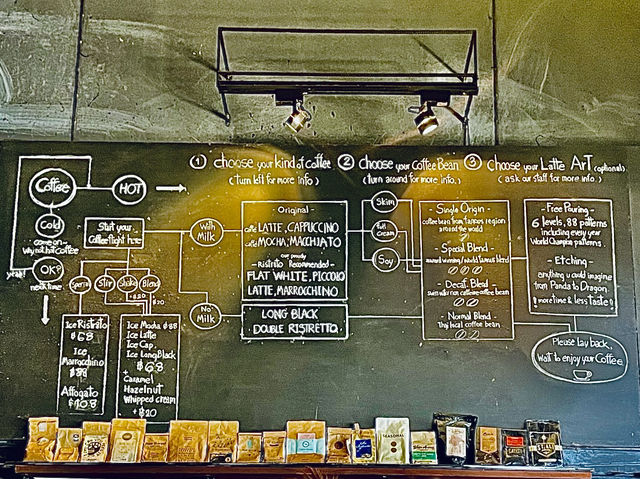 ① choose your kind of Coffee
(turn left for more info.)
② Choose your Coffee Bean
(Turn around for more info.)
③ Choose your Latte Art (optional)
(ask our staff for more info.)
Coffee
HOT
Cold
come on~
why not hot Coffee
OK?
yeah!
next time
Start your
Coffee flight here
Stir
Shake
Blend
+฿20
Ice Ristrato
Ice
Marrocchino
Affogato
Ice Mocha
Ice Latte
Ice Cap
Ice Long Black
+
Caramel
Hazelnut
Whipped cream
+฿20
With
Milk
No
Milk
- Original -
LATTE, CAPPUCCINO
MOCHA, MACCHIATO
- Ristrito Recommended -
FLAT WHITE, PICCOLO
LATTE, MARROCCHINO
LONG BLACK
DOUBLE RISTRETTO
Skim
Full
Cream
Soy
Single Origin -
coffee bean from famous region
around the world
Special Blend
award winning/world famous
Decaf. Blend
Normal Blend
Thai local coffee bean
- Free Pouring -
6 levels, 88 patterns
Including every year
World Champion patterns
- Etching -
anything u could imagine
from Panda to Dragon
! more time & less taste !
Please lay back,
Wait to enjoy your Coffee
SEASONAL